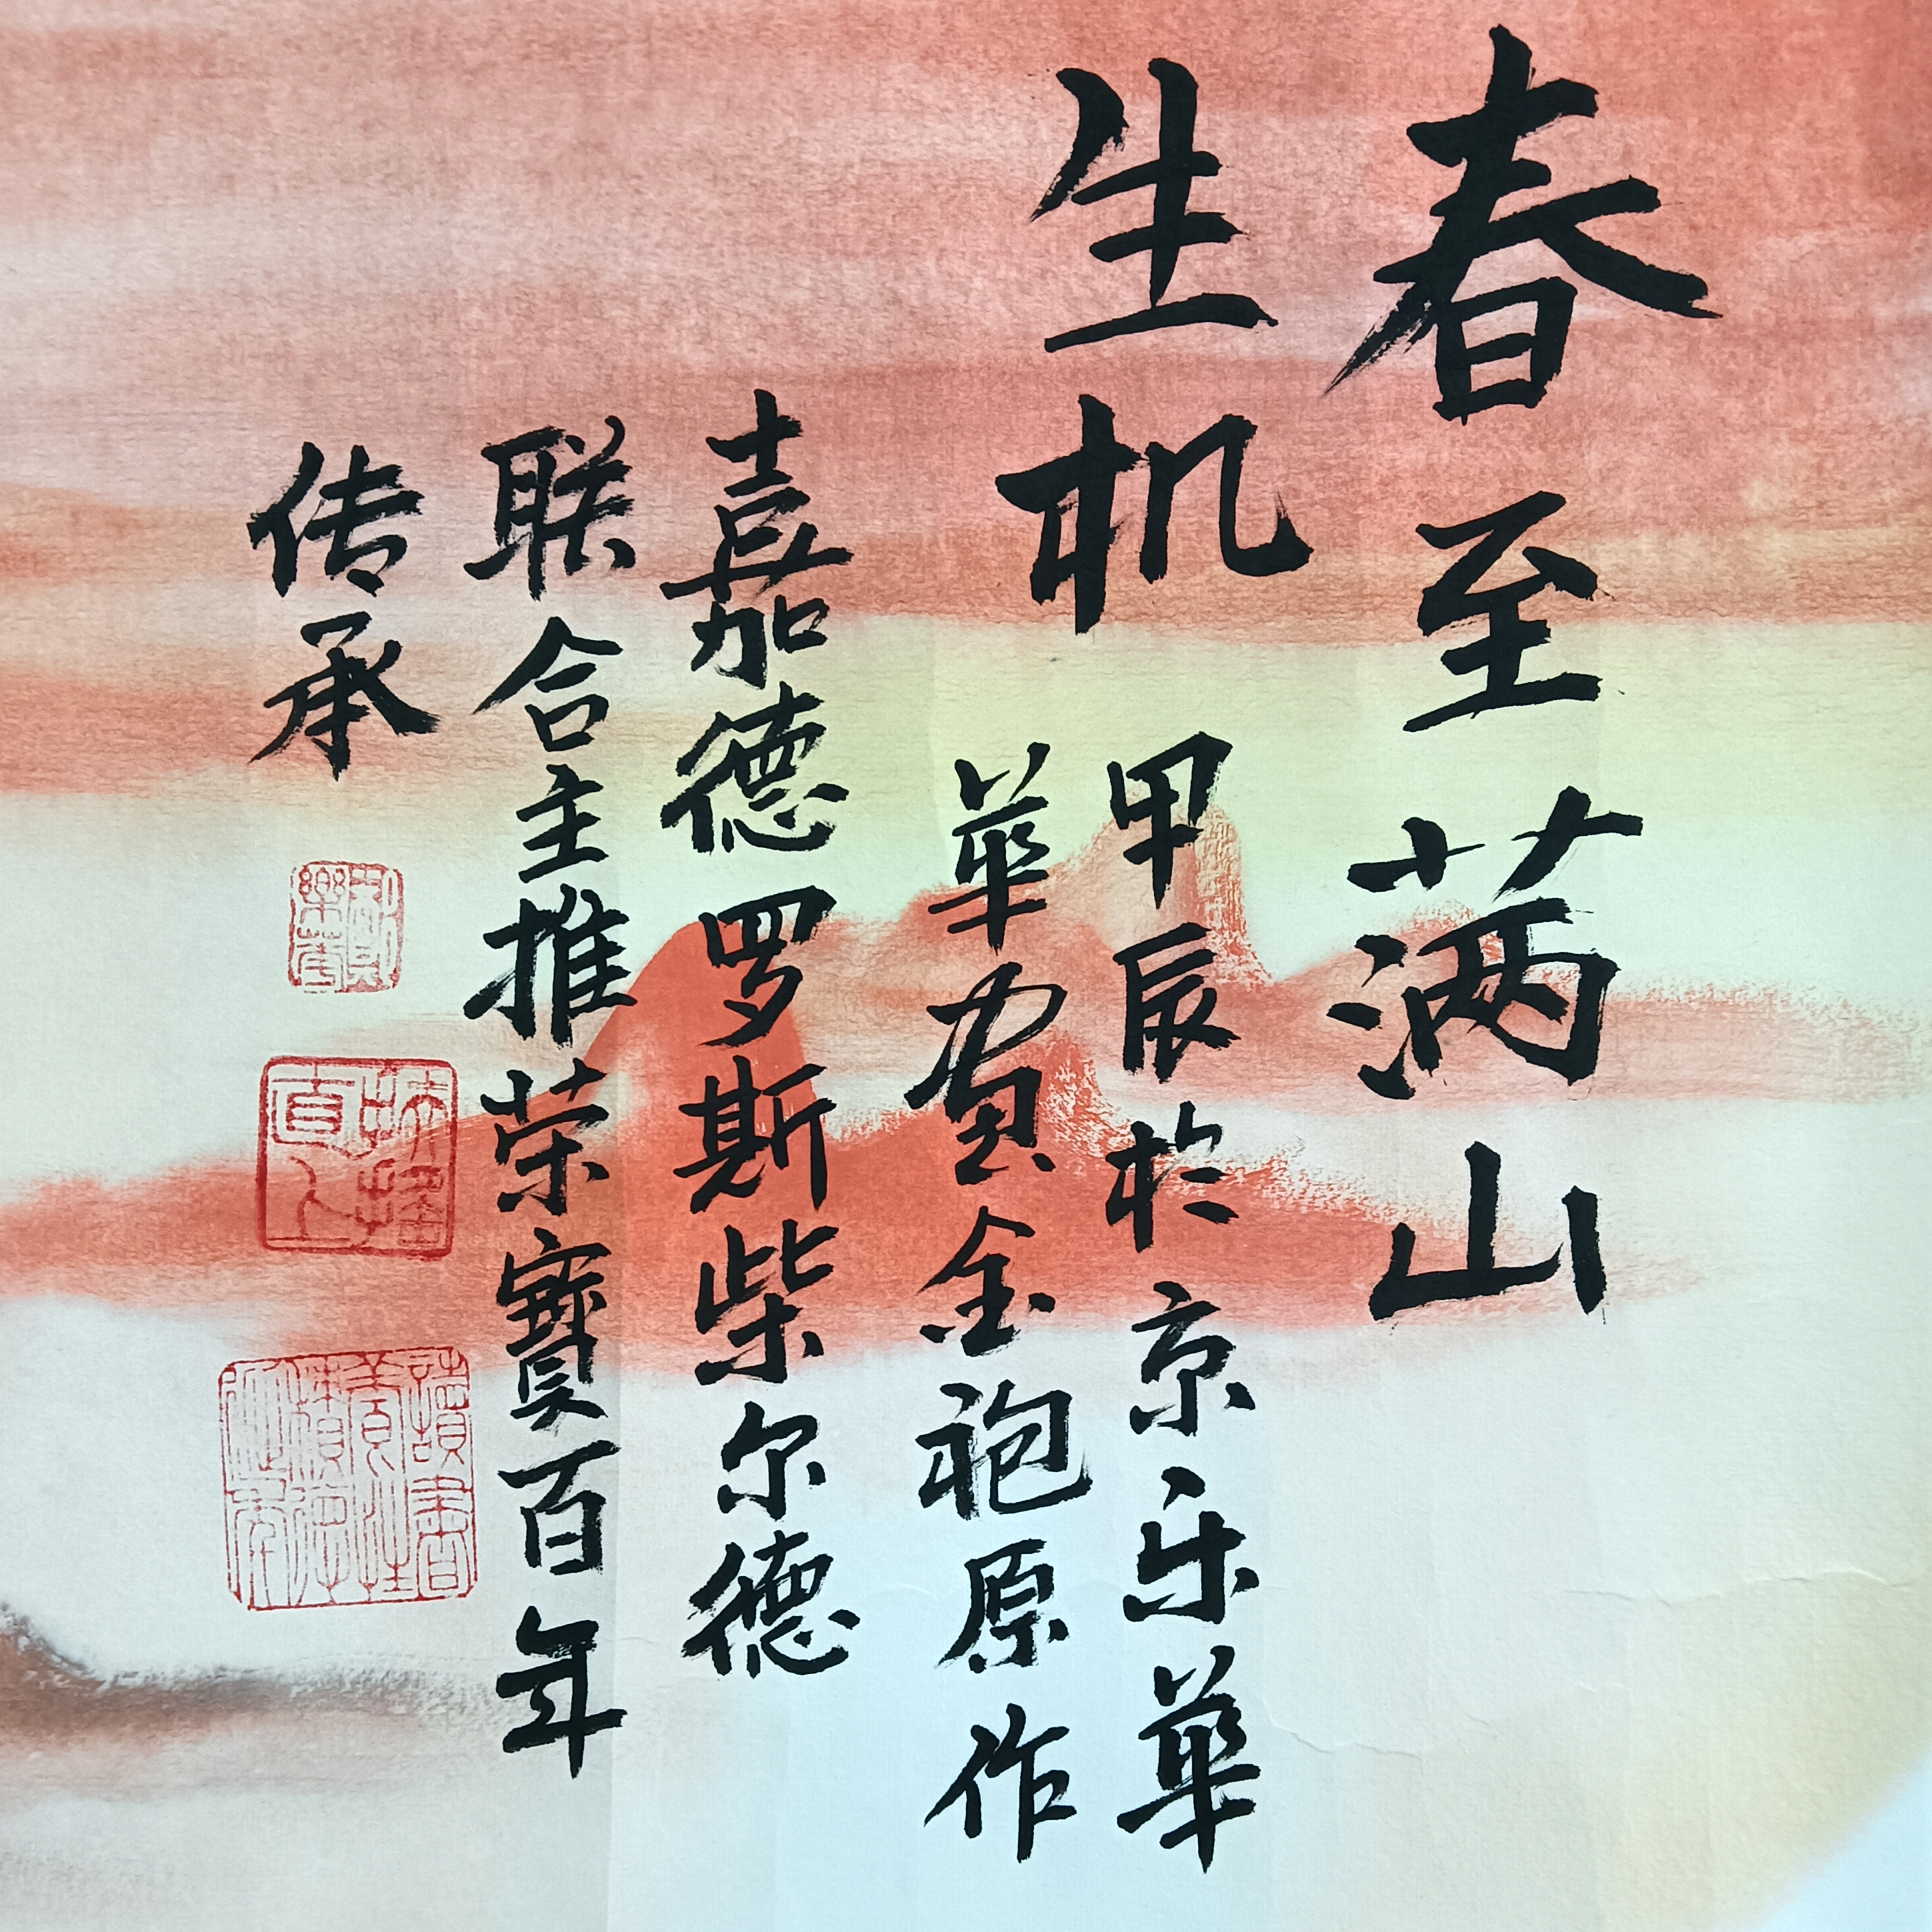 春至满山
生机
甲辰於京乐華
華賀金袍原作
嘉德罗斯柴尔德
联合主推荣寶百年
传承